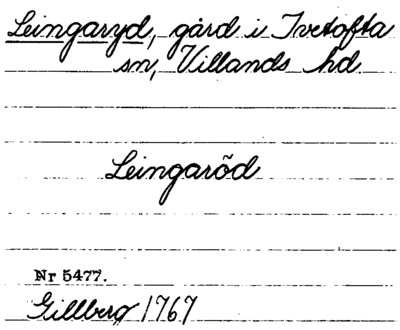 Leingaryd, gård i Ivetofta
sn, Villands hd.
Leingaröd
Nr 5477.
Gillberg 1767